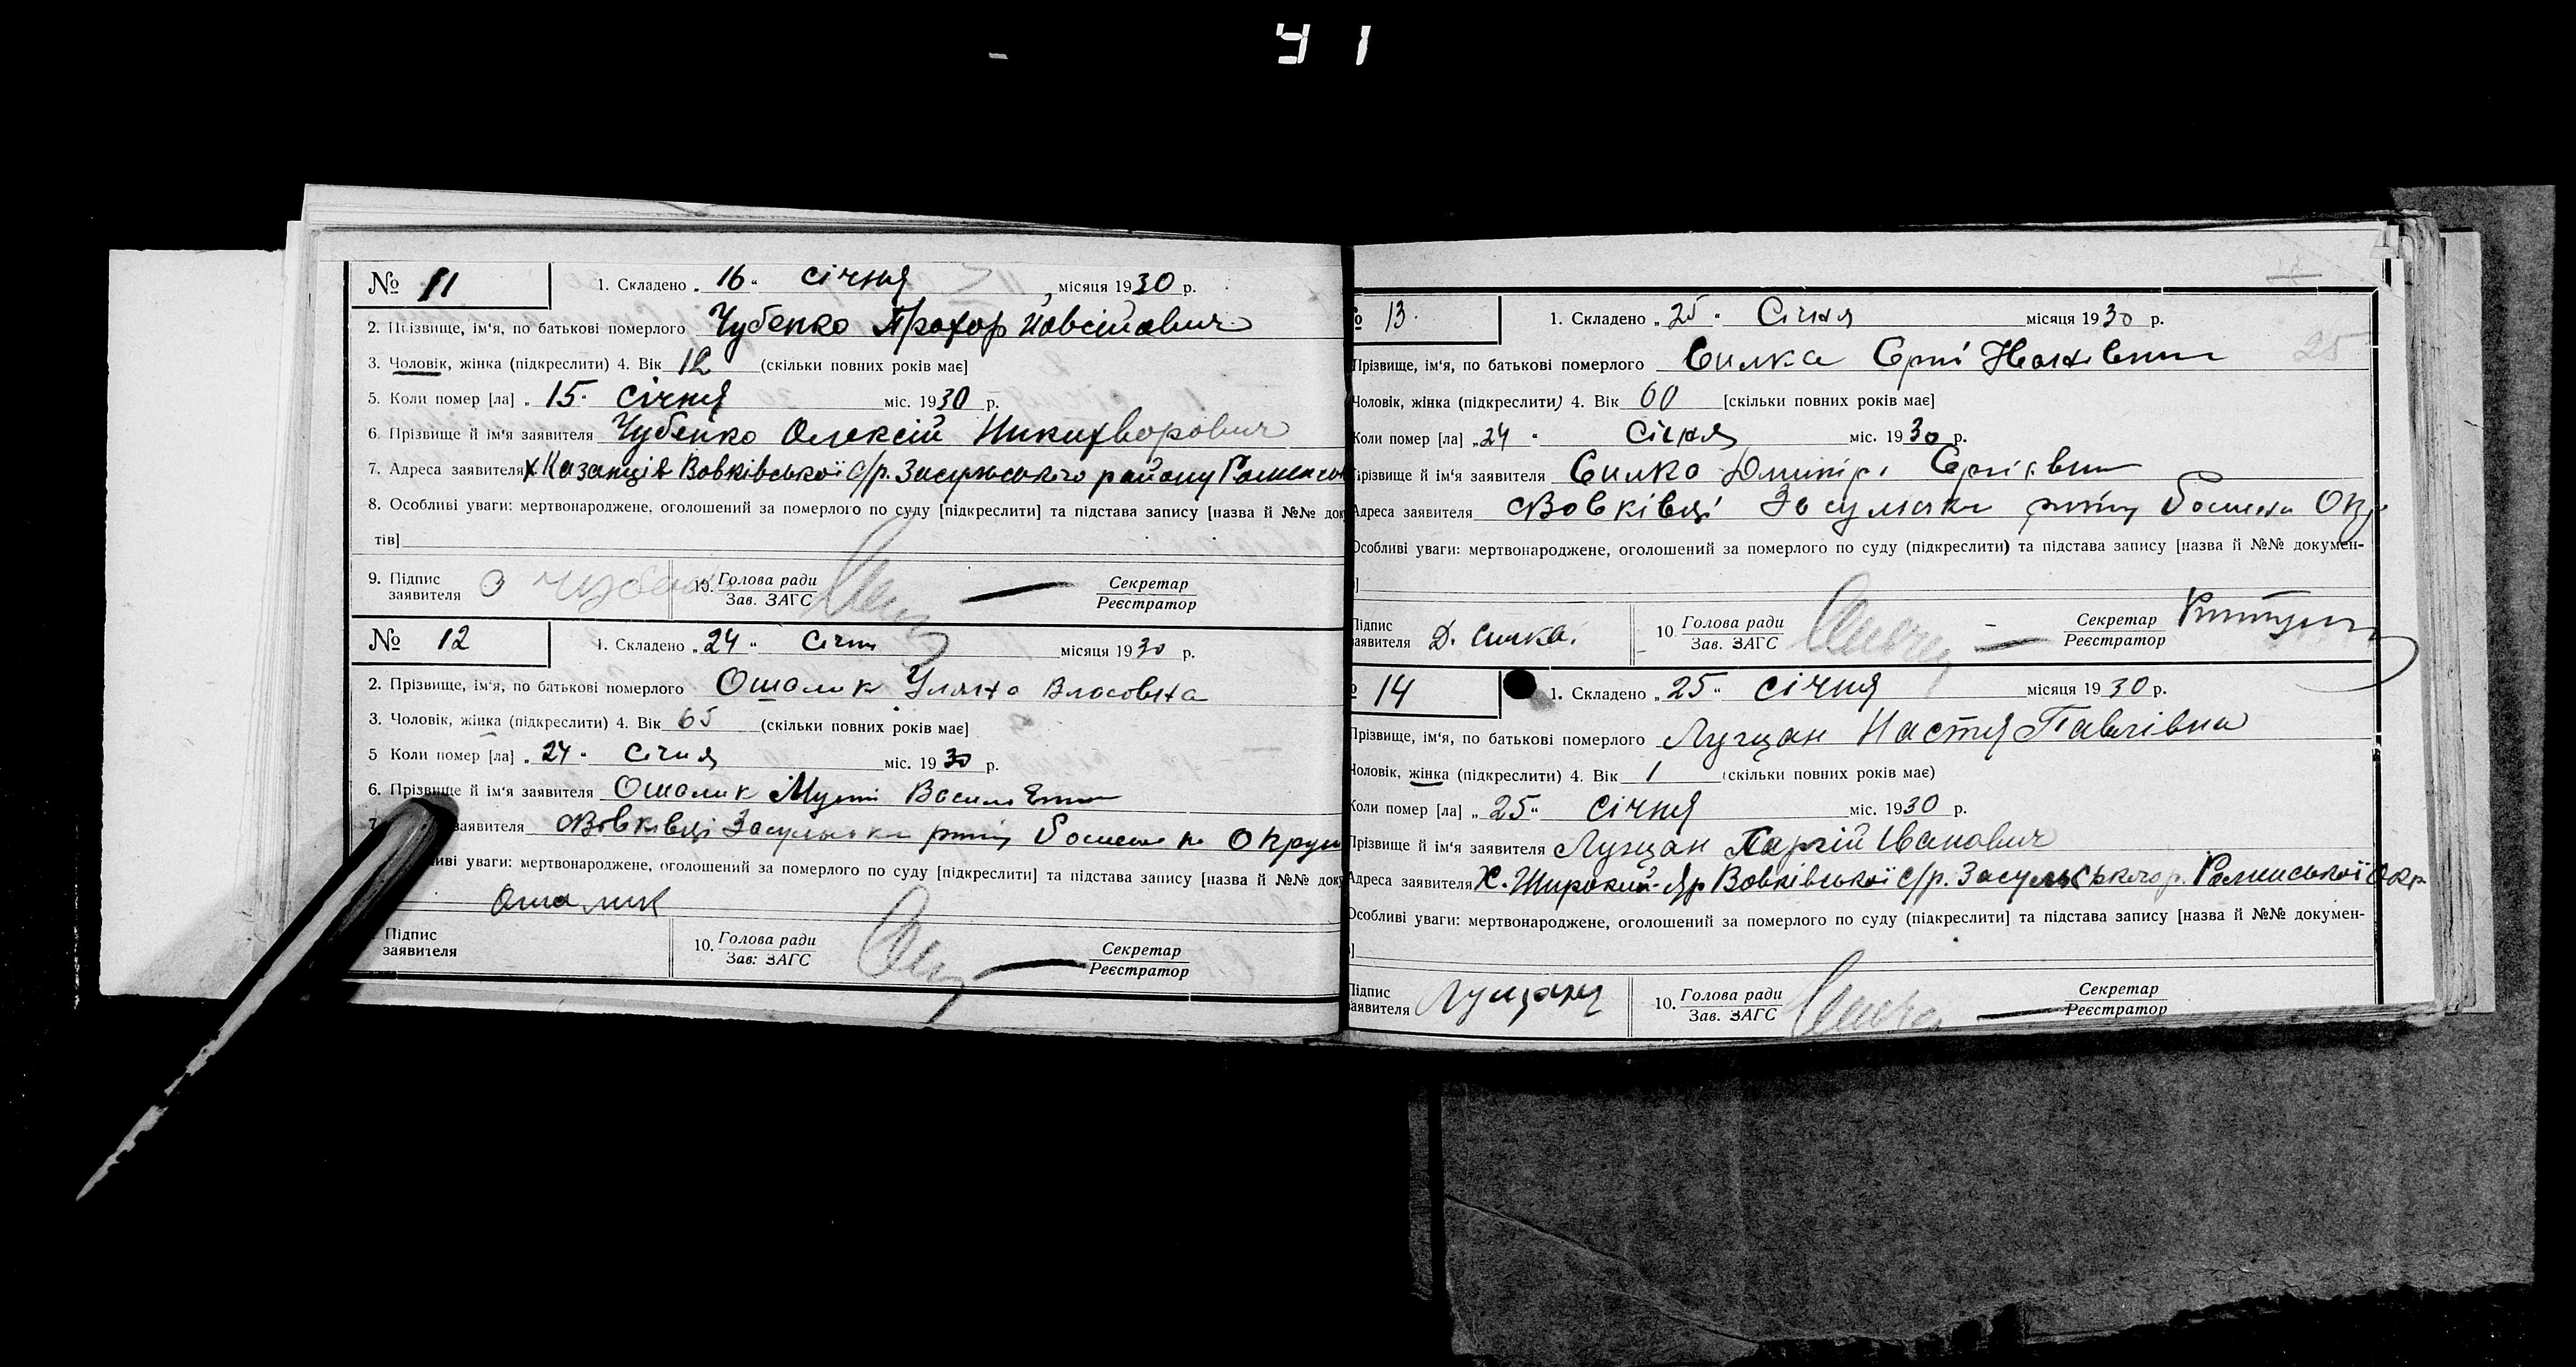 У 1
№ 11 1. Складено „16“ січня місяця 1930 р.
2. Прізвище, ім'я, по батькові померлого Чубенко Прохор Йовсійович
3. Чоловік, жінка (підкреслити) 4. Вік 12 (скільки повних років має]
5. Коли помер [ла] „15“ січня міс. 1930 р.
6. Прізвище й ім'я заявителя Чубенко Олексій Никихворович
7. Адреса заявителя х Казанців Вовківської с/р. Засульського району
8. Особливі уваги: мертвонароджене, оголошений за померлого по суду [підкреслити] та підстава запису [назва й №№ док
тів]
9. Підпис заявителя О Чубенко 10. Голова ради Зав. ЗАГС Секретар Реєстратор
№ 12 1. Складено „24“ січня місяця 1930 р.
2. Прізвище, ім'я, по батькові померлого Ошолик Уляна Власовна
3. Чоловік, жінка (підкреслити) 4. Вік 65 (скільки повних років має]
5 Коли помер [ла] „24“ січня міс. 1930 р.
6. Прізвище й ім'я заявителя Ошолик
7. заявителя Вовківці
иві уваги: мертвонароджене, оголошений за померлого по суду [підкреслити] та підстава запису [назва й №№ доку
Ошалик
Підпис заявителя 10. Голова ради Зав: ЗАГС Секретар Реєстратор
25
№ 13. 1. Складено „25“ Січня місяця 1930 р.
Прізвище, ім'я, по батькові померлого Силка
Чоловік, жінка (підкреслити) 4. Вік 60 [скільки повних років має]
Коли помер [ла] „24“ Січня міс. 1930 р.
Прізвище й ім'я заявителя Силко
Адреса заявителя Вовківці
Особливі уваги: мертвонароджене, оголошений за померлого по суду (підкреслити) та підстава запису [назва й №№ докумен-
]
Підпис заявителя Д. Силка. 10. Голова ради Зав. ЗАГС Секретар Реєстратор
14 1. Складено „25“ січня місяця 1930 р.
Прізвище, ім'я, по батькові померлого Лущан Настя Павлівна
Чоловік, жінка (підкреслити) 4. Вік 1 (скільки повних років має)
Коли помер [ла] „25“ січня міс. 1930 р.
Прізвище й ім'я заявителя Лущан Іванович
Адреса заявителя Х. Широкий-Яр Вовківської с/р. Засульського р. Роменської окр
Особливі уваги: мертвонароджене, оголошений за померлого по суду (підкреслити] та підстава запису [назва й №№ докумен-
]
Підпис заявителя Лущан 10. Голова ради Зав. ЗАГС Секретар Реєстратор